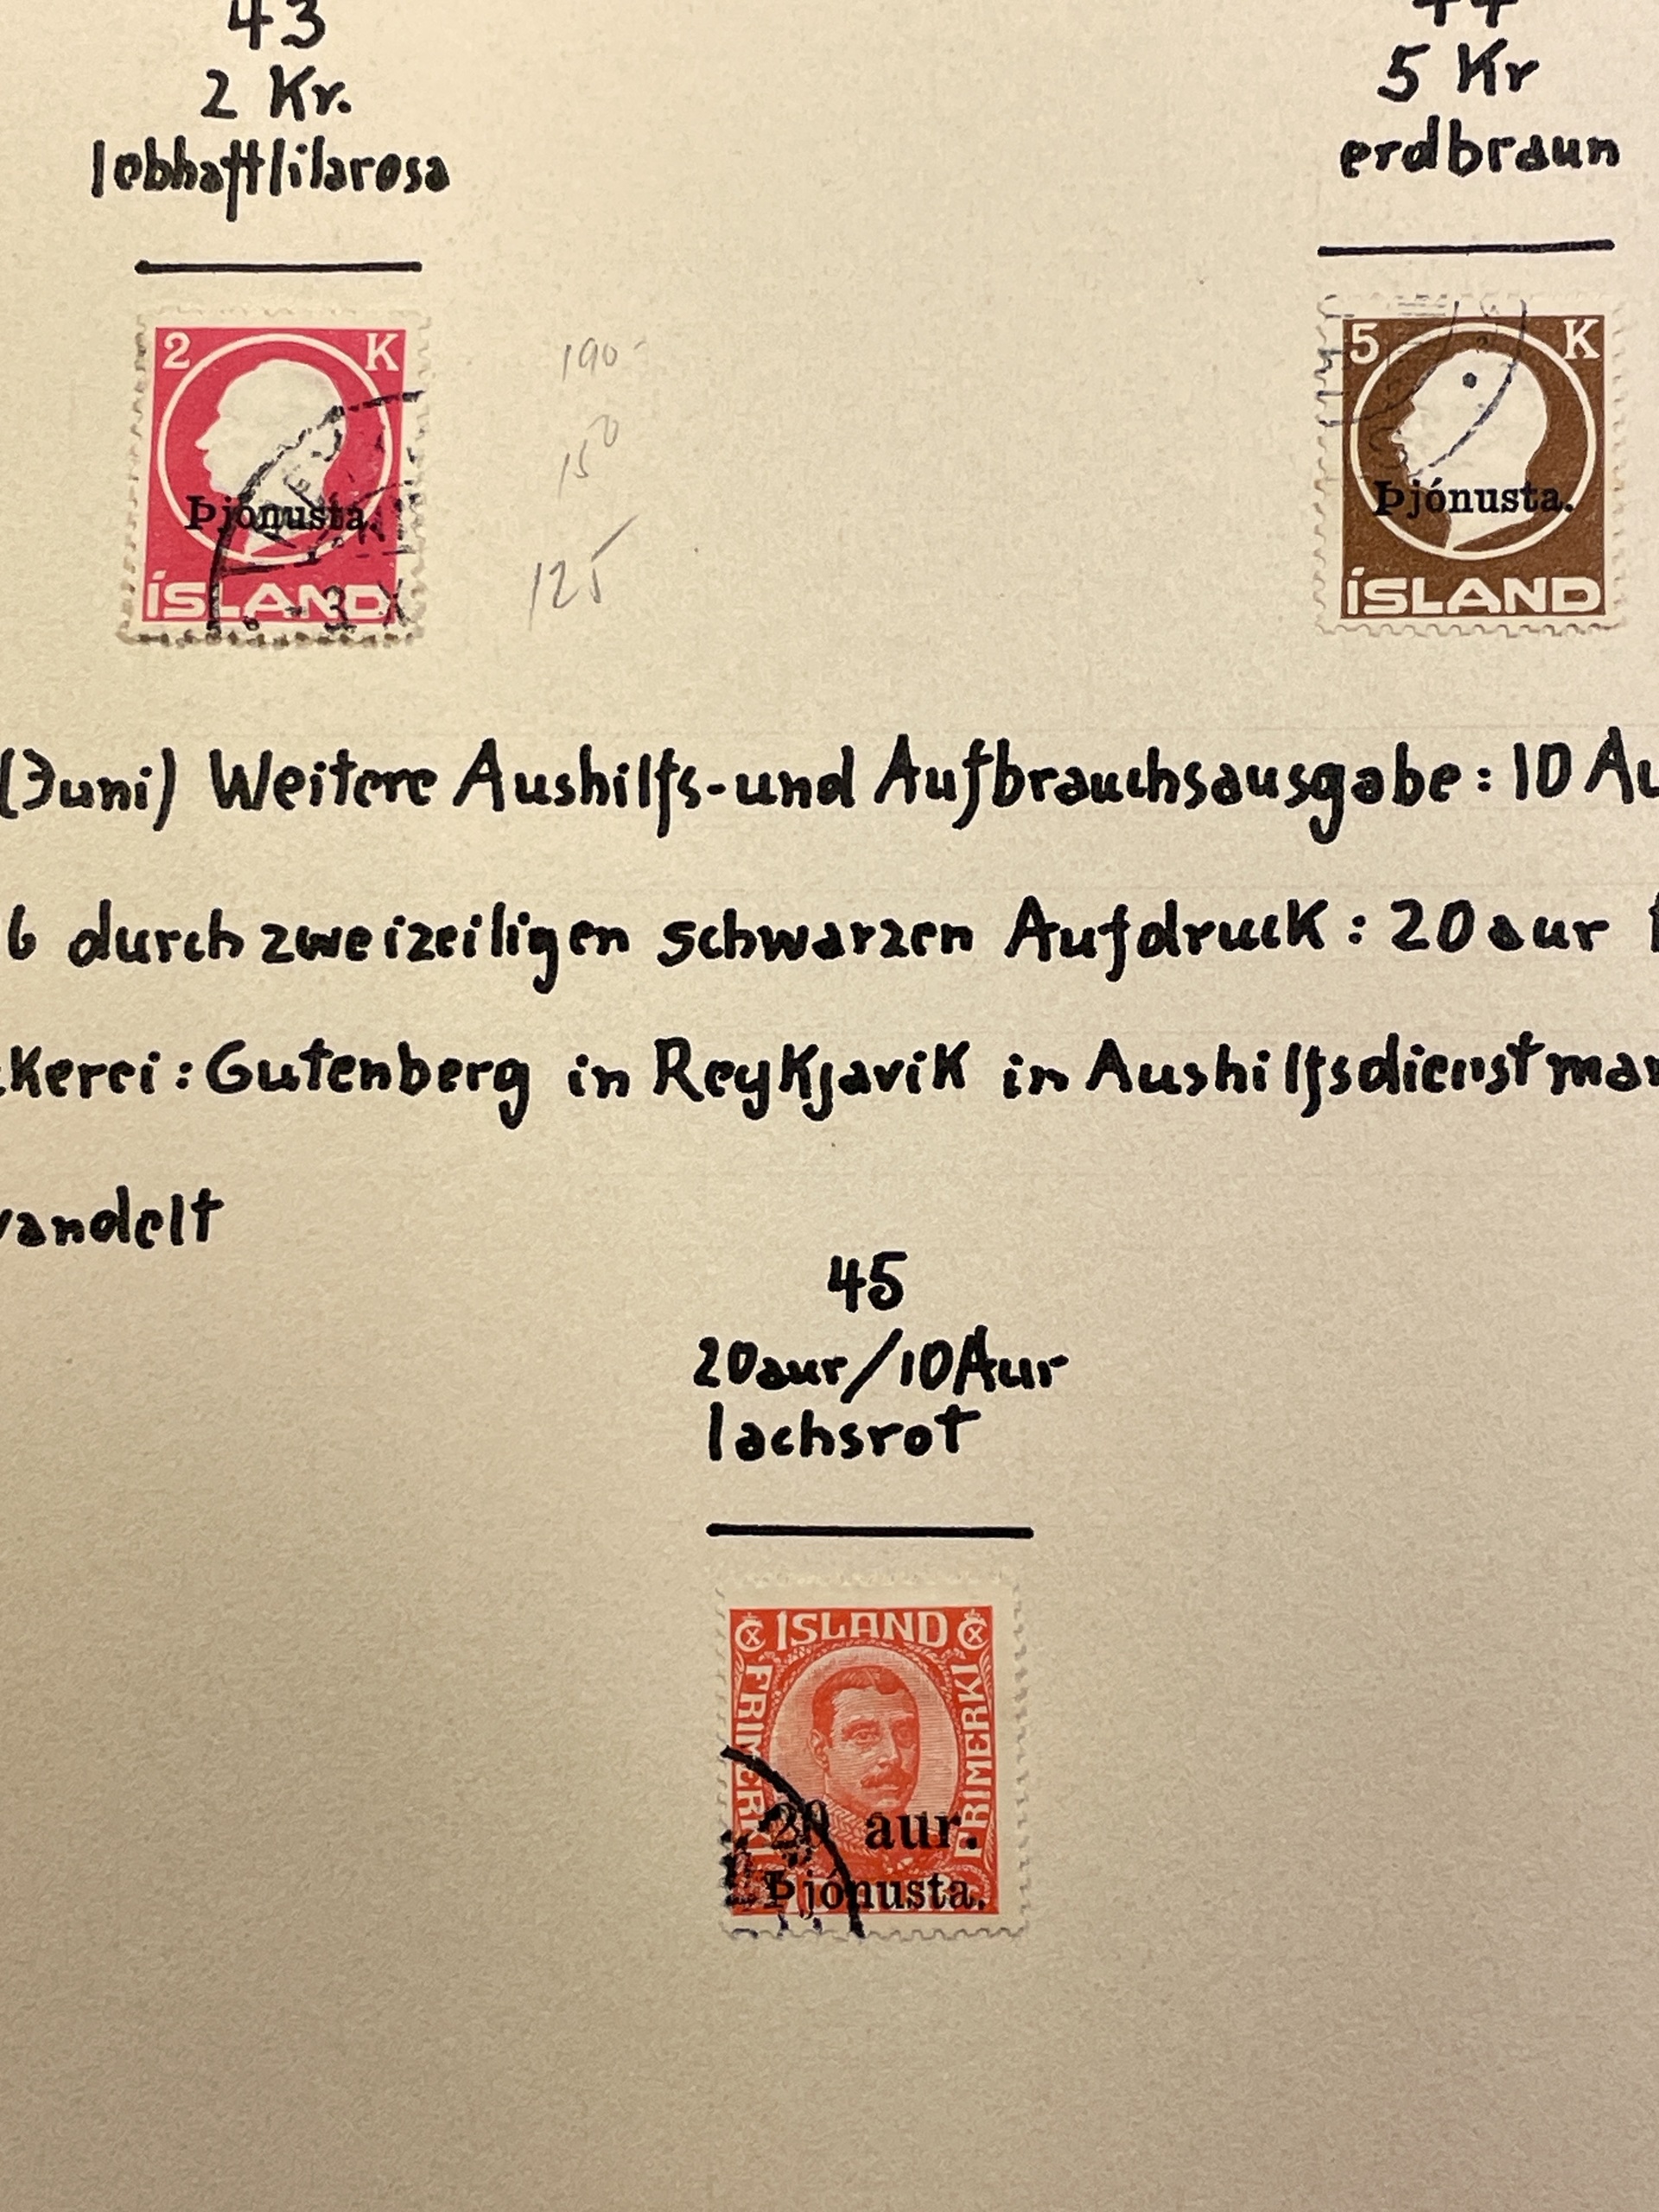 43
2 Kr.
lebhaftlilarosa
44
5 Kr
erdbraun
2 K
Þjónusta.
ÍSLAND
190
150
125
5 K
Þjónusta.
ÍSLAND
(Juni) Weitere Aushilfs-und Aufbrauchsausgabe: 10 Au
6 durch zweizeiligen schwarzen Aufdruck: 20 aur
kerei: Gutenberg in Reykjavik in Aushilfsdienstmar
wandelt
45
20aur/10Aur
lachsrot
ÍSLAND
FRIMERKI
FRIMERKI
20 aur.
Þjónusta.